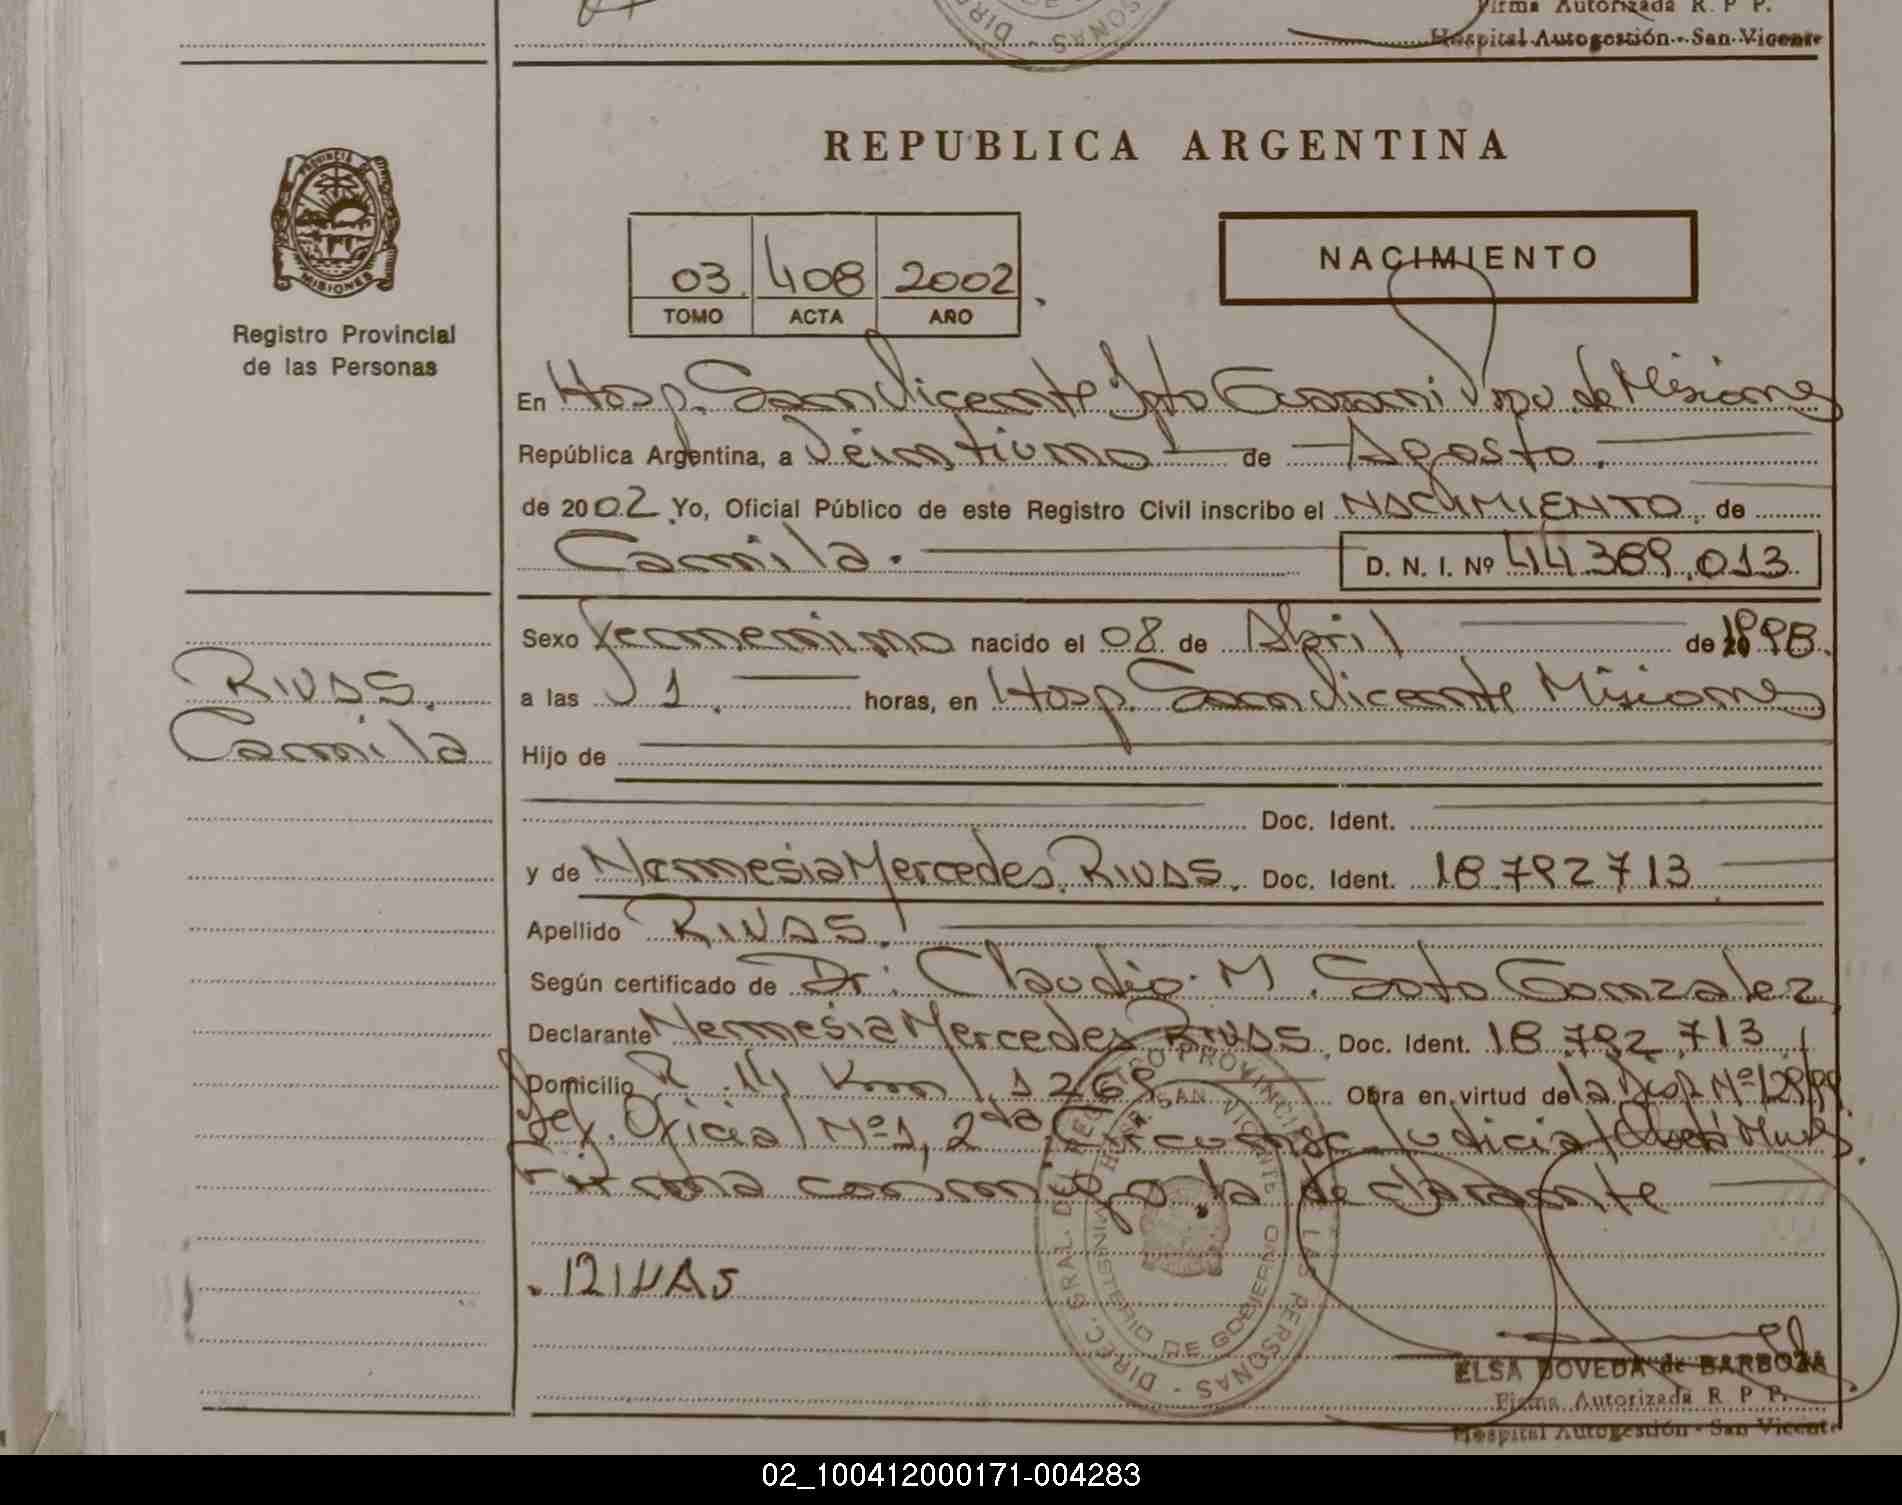 Firma Autorizada R. P P.
Hospital Autogestión - San Vicente
REPUBLICA ARGENTINA
PROVINCIA DE MISIONES
Registro Provincial
de las Personas
03 408 2002
TOMO ACTA AÑO
NACIMIENTO
En Hosp. San Vicente Dpto Guarani Provi de Misiones
República Argentina, a Veintiuno de Agosto.
de 2002 Yo, Oficial Público de este Registro Civil inscribo el NACIMIENTO, de
Camila. D. N. I. Nº 44.389.013
Sexo femenino nacido el 08 de Abril de 1998.
RIVAS.
Camila
a las 1. horas, en Hosp. San Vicente Misiones
Hijo de
Doc. Ident.
y de Nemesia Mercedes RIVAS. Doc. Ident. 18.792713
Apellido RIVAS.
Según certificado de Dr: Claudio M. Soto Gonzalez
Declarante Nemesia Mercedes RIVAS. Doc. Ident. 18.792.713
Domicilio R. 14 Km 1269 Obra en virtud de la Nº
Oficial Nº1, 2da Judicial
Firma conmigo la declarante
DIREC. GRAL. DEL REGISTRO PROVINCIAL DE LAS PERSONAS
HOSP. SAN VICENTE
MINISTERIO DE GOBIERNO
RIVAS
ELSA BOVEDA de BARBOZA
Firma Autorizada R P P.
Hospital Autogestión - San Vicente
02_100412000171-004283